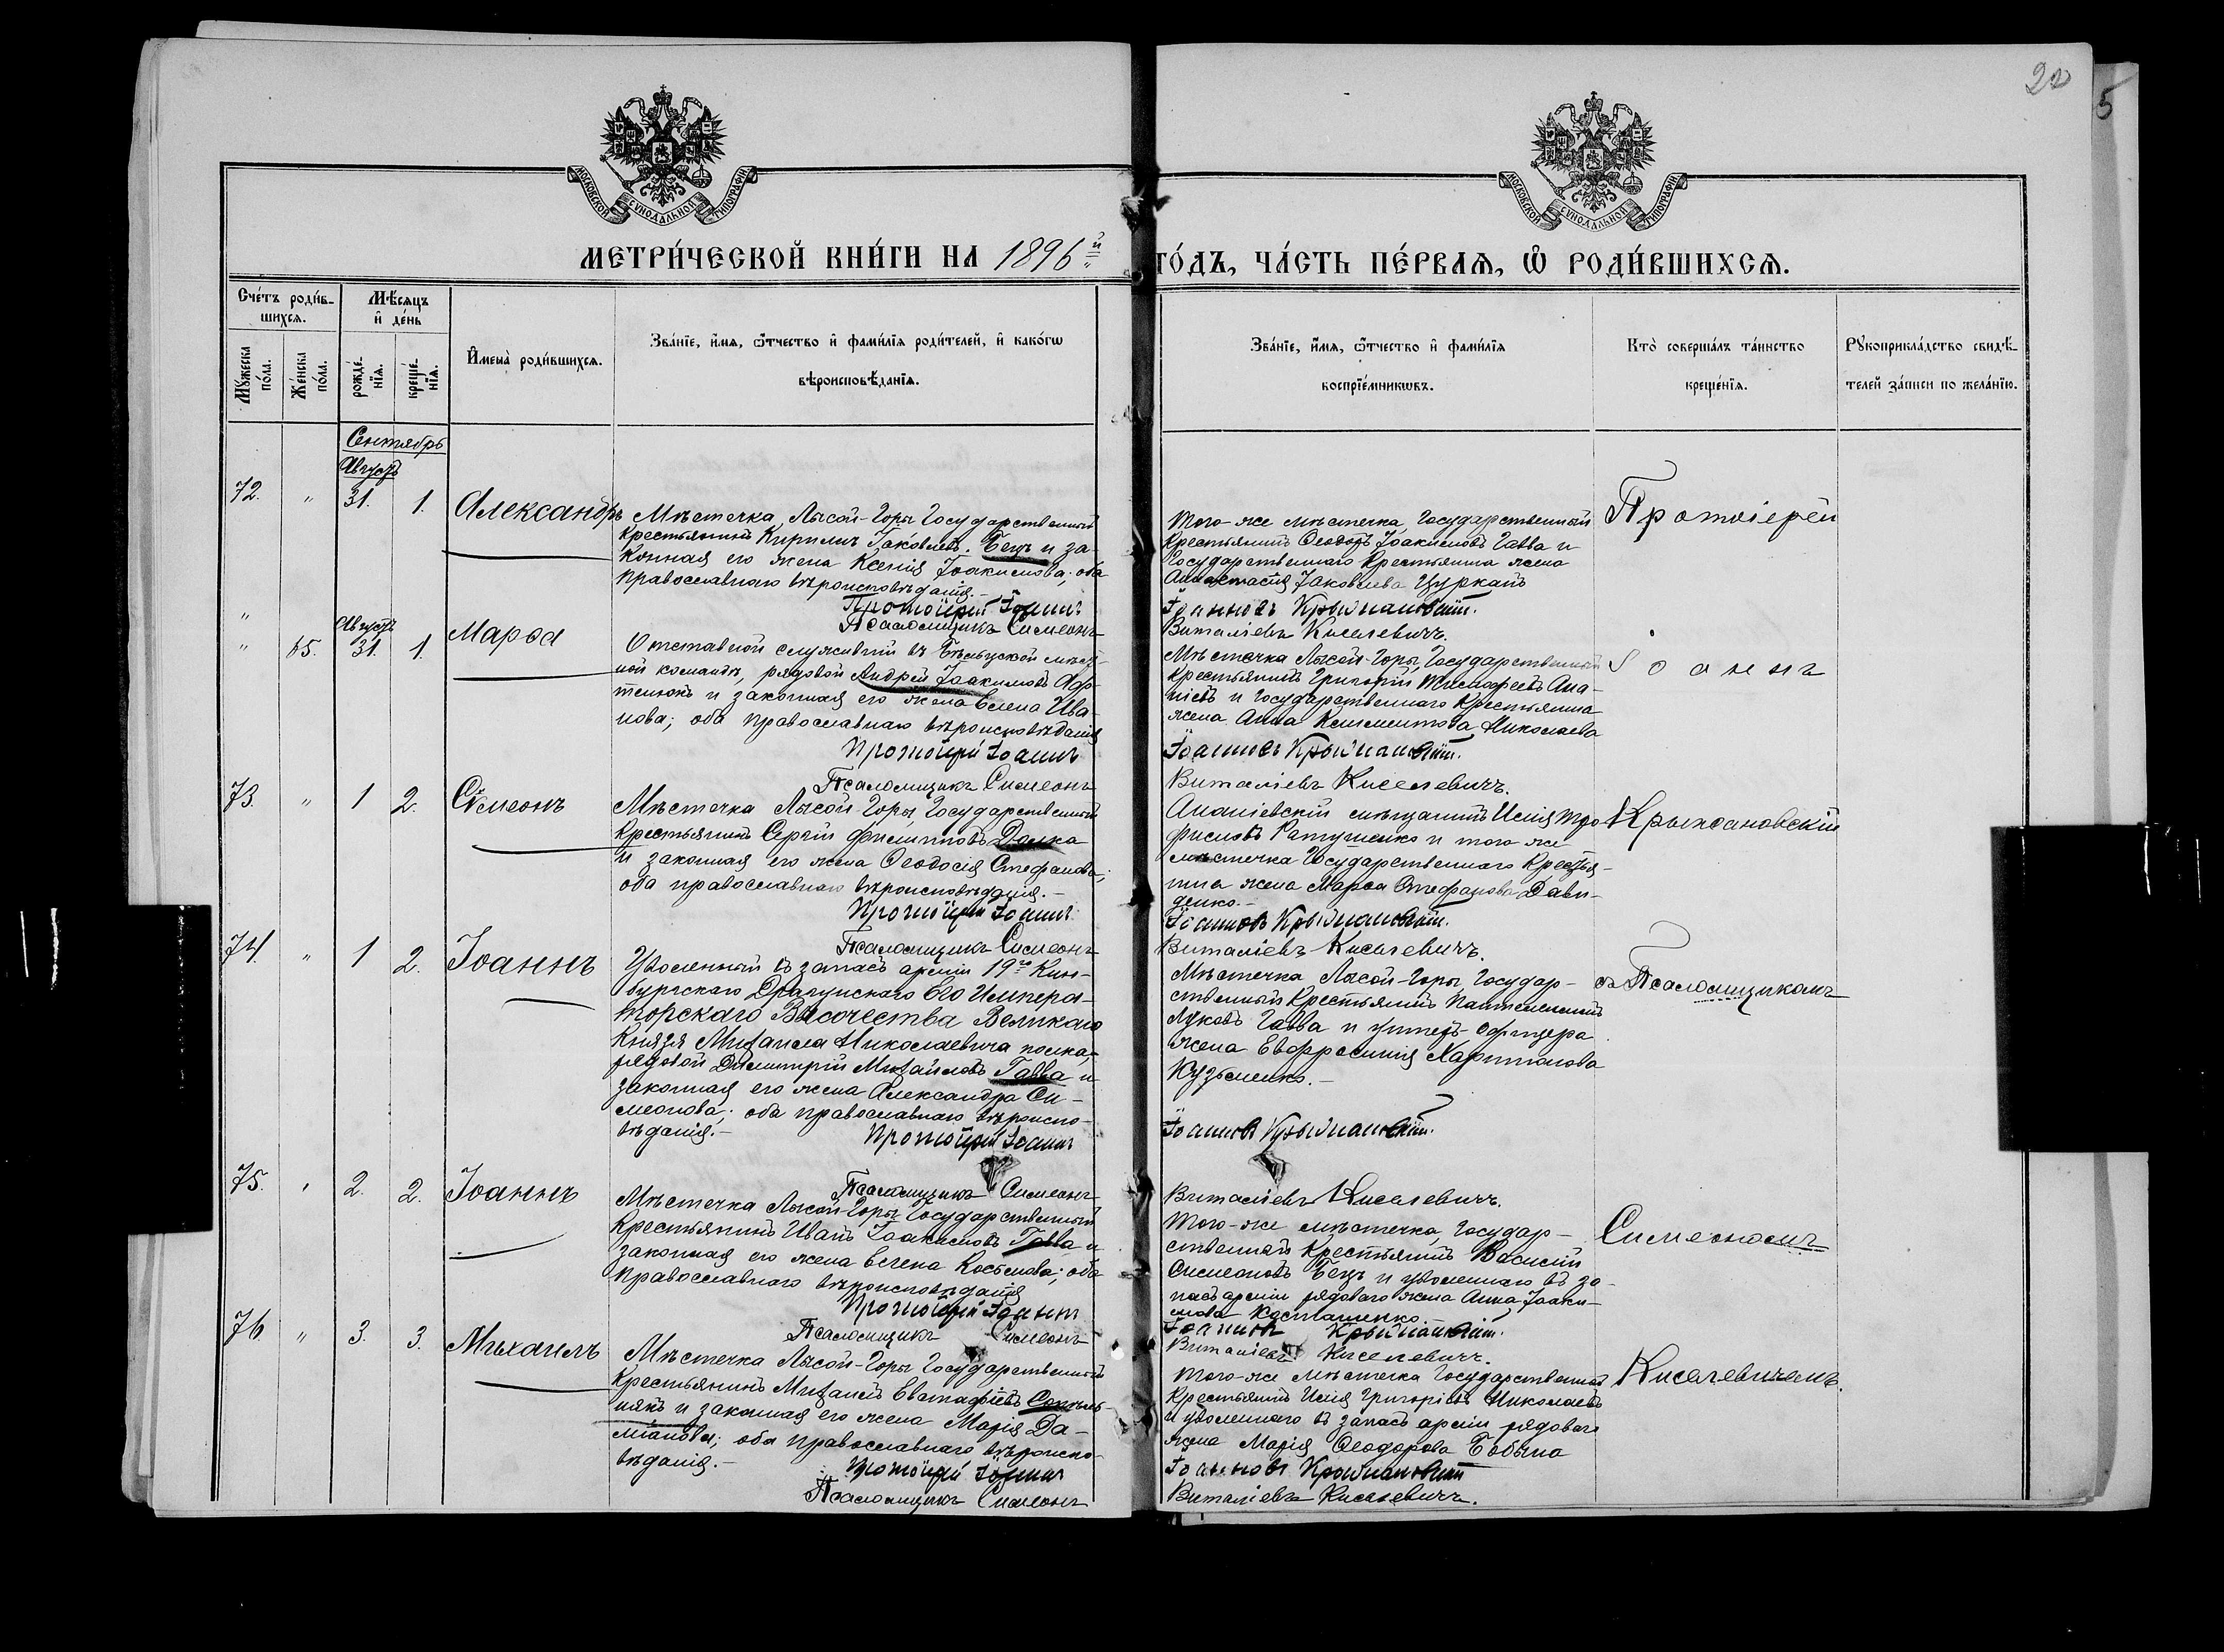 22
5
МОСКОВСКОЙ СѴНОДАЛЬНОЙ ТИПОГРАФІИ
МОСКОВСКОЙ СѴНОДАЛЬНОЙ ТИПОГРАФІИ
МЕТРИ́ЧЕСКОЙ КНИ́ГИ НА 1896й
ГО́ДЪ, ЧА́СТЬ ПЕ́РВАЯ, Ѽ РОДИ́ВШИХСЯ.
Сче́тъ роди́в-
шихся.
Мѣ́сяцъ
и де́нь
Мꙋ́жеска
по́ла.
Же́нска
по́ла.
рожде́-
нія.
креще́-
нія.
Имена̀ роди́вшихся.
Зва́ніе, и́мя, ѻ҆́тчество и фами́лія роди́телей, и како́гѡ
вѣроисповѣ́данія.
Зва́ніе, и́мя, ѻ҆́тчество и фами́лія
воспріе́мникѡвъ.
Кто̀ соверша́лъ та́инство
креще́нія.
Рꙋкоприкла́дство свидѣ́-
телей за́писи по жела́нію.
Сентябрь
Августъ
72. " 31. 1. Александръ
Мѣстечка Лысой-Горы Государственный
крестьянинъ Кириллъ Іаковлевъ Бецъ и за-
конная его жена Ксенія Іоакимова; оба
православнаго вѣроисповѣданія.-
Протоіерей Іоаннъ
Псаломщикъ Симеонъ
Того-же мѣстечка, Государственный
крестьянинъ Ѳеодоръ Іоакимовъ Гавва и
Государственнаго крестьянина жена
Анастасія Іаковлева Цуркан
Іоанновъ Крыжановскій.
Виталіевъ Кисилевичъ.
Протоіерей
Августъ
" 65. 31. 1. Марѳа
Отставной служившій въ Бѣльцской мѣст-
ной командѣ, рядовой Андрей Іоакимовъ
и законная его жена Елена Ива-
нова; оба православнаго вѣроисповѣданія
Протоіерей Іоаннъ
Псаломщикъ Симеонъ
Мѣстечка Лысой-Горы, Государственный
крестьянинъ Григорій Тимоѳеевъ Ана-
ніевъ и Государственнаго крестьянина
жена Анна Климентова Николаева
Іоанновъ Крыжановскій.
Виталіевъ Киселевичъ.
Іоаннъ
73. " 1 2. Симеонъ
Мѣстечка Лысой-Горы, Государственный
крестьянинъ Сергій Филипповъ
и законная его жена Ѳеодосія Стефанова;
оба православнаго вѣроисповѣданія.-
Протоіерей Іоаннъ
Псаломщикъ Симеонъ
Ананіевскій мѣщанинъ Илія Тро-
фимовъ Ратушенко и того же
мѣстечка Государственнаго крестья-
нина жена Марѳа Стефанова Дави-
денко.-
Іоанновъ Крыжановскій.
Виталіевъ Кисилевичъ.
Крыжановскій
74. " 1 2. Іоаннъ
Уволенный въ запасъ арміи 19го Кин-
бургскаго Драгунскаго Его Импера-
торскаго Высочества Великаго
Князя Михаила Николаевича полка,
рядовой Димитрій Михайловъ Гавва и
законная его жена Александра Си-
меонова; оба православнаго вѣроиспо-
вѣданія.-
Протоіерей Іоаннъ
Псаломщикъ Симеонъ
Мѣстечка Лысой-Горы, Государ-
ственный крестьянинъ Пантелеимонъ
Луковъ Гавва и унтеръ-офицера
жена Евфросинія Харитонова
Кузьменко.-
Іоанновъ Крыжановскій.
Виталіевъ Кисилевичъ.
съ Псаломщикомъ
75. " 2. 2. Іоаннъ
Мѣстечка Лысой-Горы Государственный
крестьянинъ Иванъ Іоакимовъ Гавва и
законная его жена Елена Косьмова; оба
православнаго вѣроисповѣданія
Протоіерей Іоаннъ
Псаломщикъ Симеонъ
Того-же мѣстечка, Государ-
ственный крестьянинъ Василій
Симеоновъ Бецъ и уволеннаго въ за-
пасъ арміи рядоваго жена Анна Іоаки-
мова Косташенко
Іоанновъ Крыжановскій.
Виталіевъ Киселевичъ.
Симеономъ
76 " 3. 3. Михаилъ
Мѣстечка Лысой-Горы Государственный
крестьянинъ Михаилъ Евстафіевъ
и законная его жена Марія Да-
міанова; оба православнаго вѣроиспо-
вѣданія.-
Протоіерей Іоаннъ
Псаломщикъ Симеонъ
Того-же мѣстечка Государственный
крестьянинъ Илія Григоріевъ Николаевъ
и уволеннаго въ запасъ арміи рядоваго
жена Марія Ѳеодорова
Іоанновъ Крыжановскій
Виталіевъ Кисилевичъ.
Кисилевичемъ.